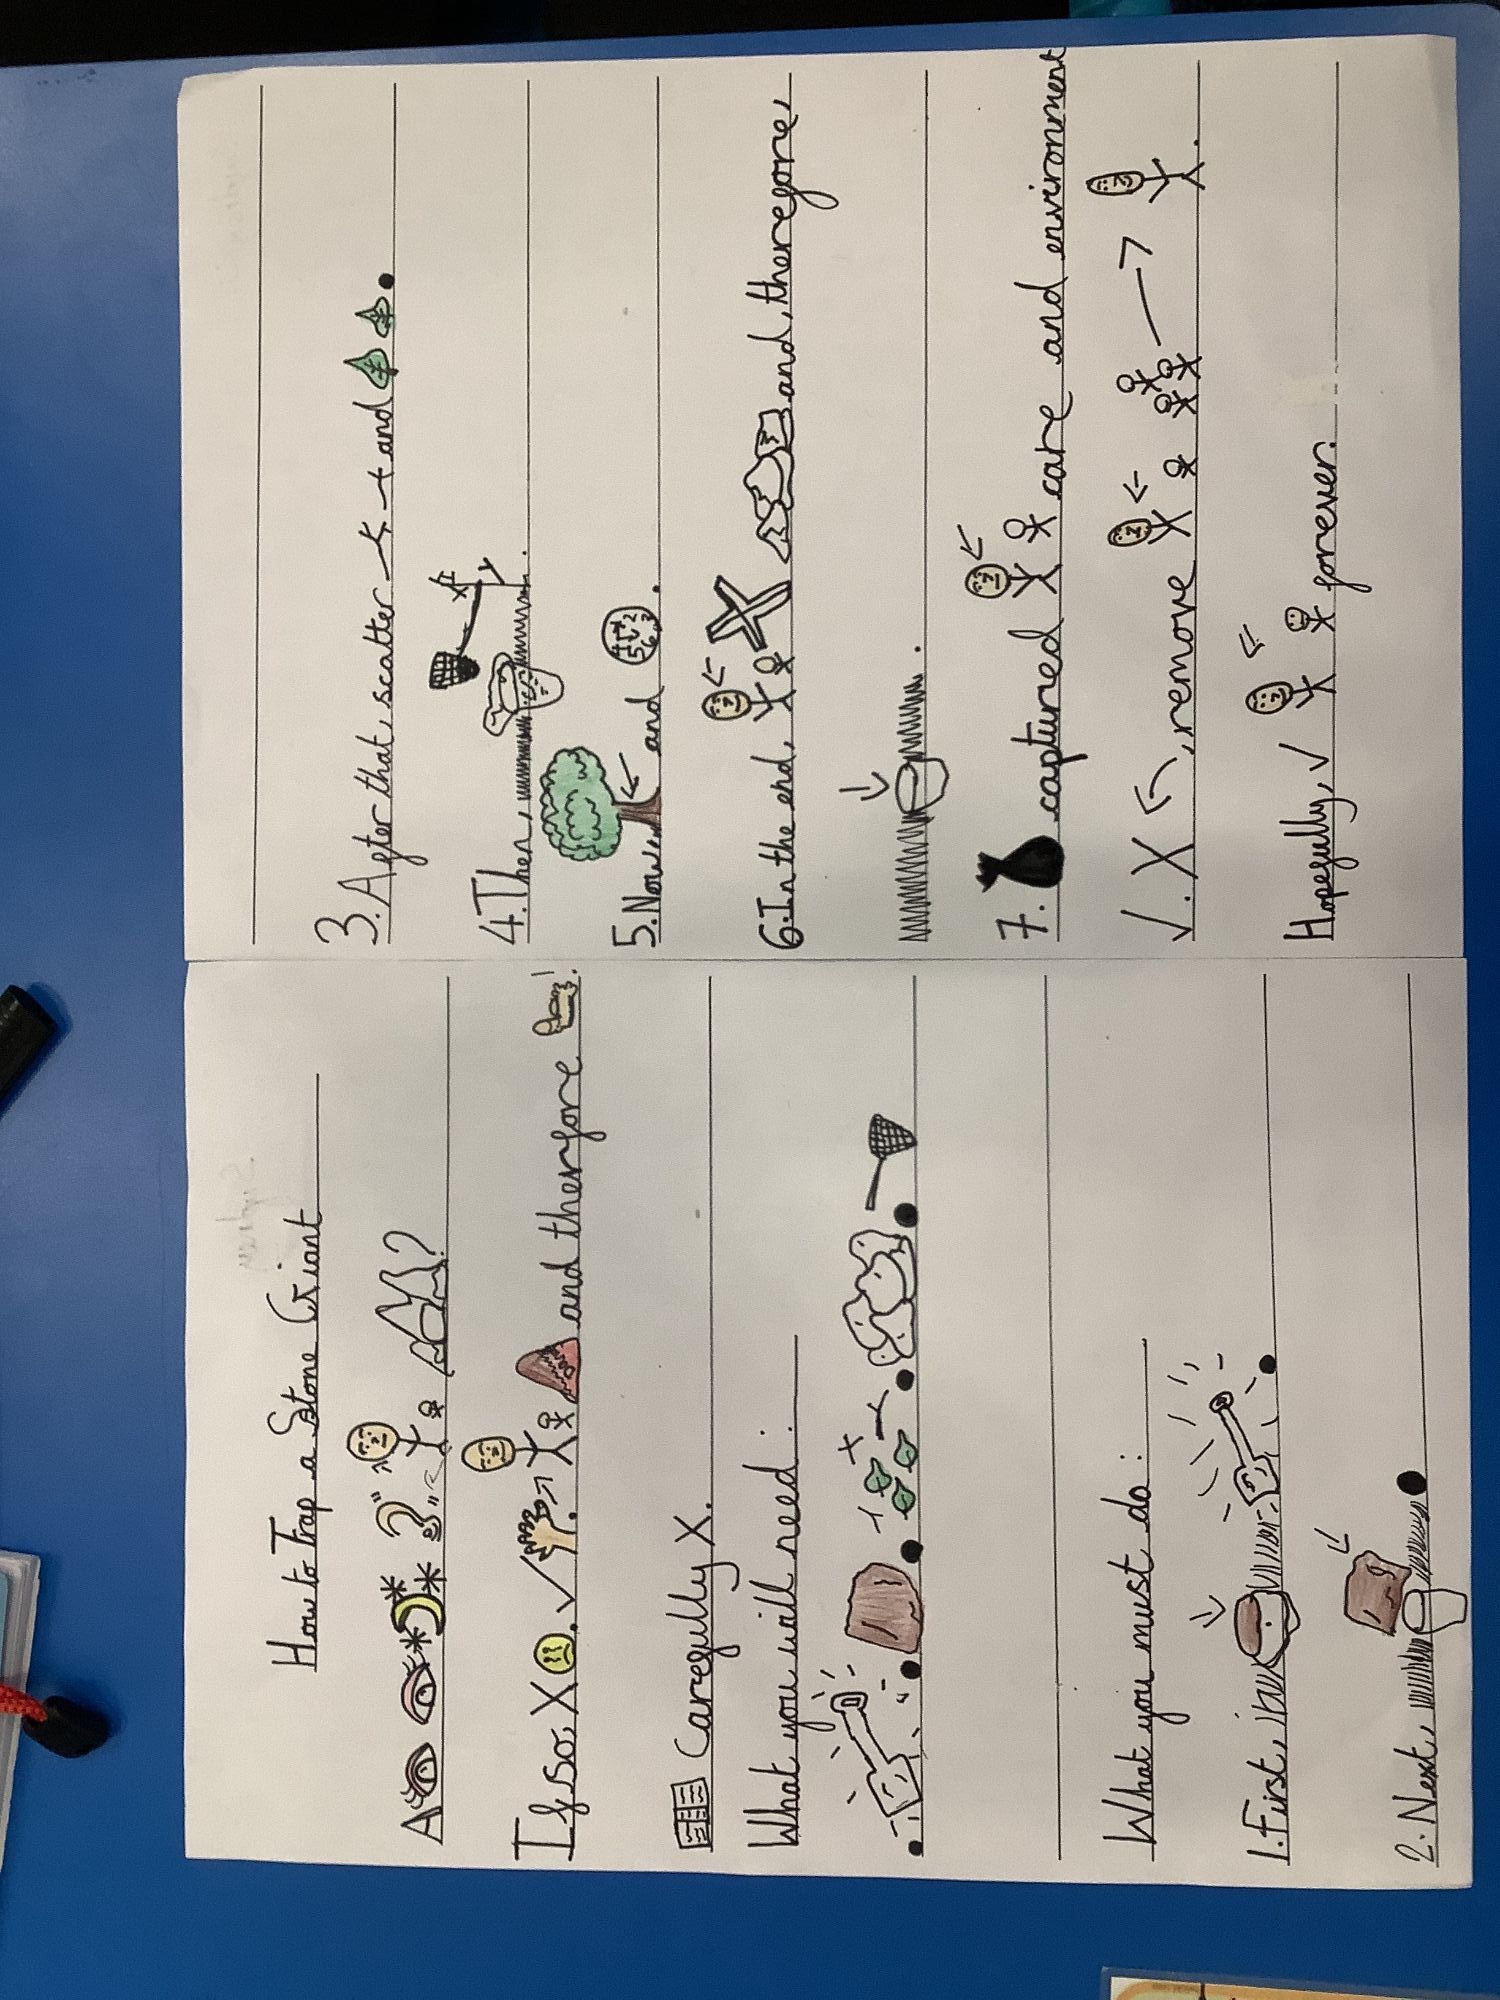 How to Trap a Stone Giant
A ?
If so, X . ✓ . Danger and therefore !
Carefully X.
What you will need:
What you must do:
1. First,
2. Next,
3. After that, scatter and .
4. Then, .
5. Now and .
6. In the end, X and, therefore,
.
7. captured care and environment
✓. X , remove .
Hopefully, ✓ forever.